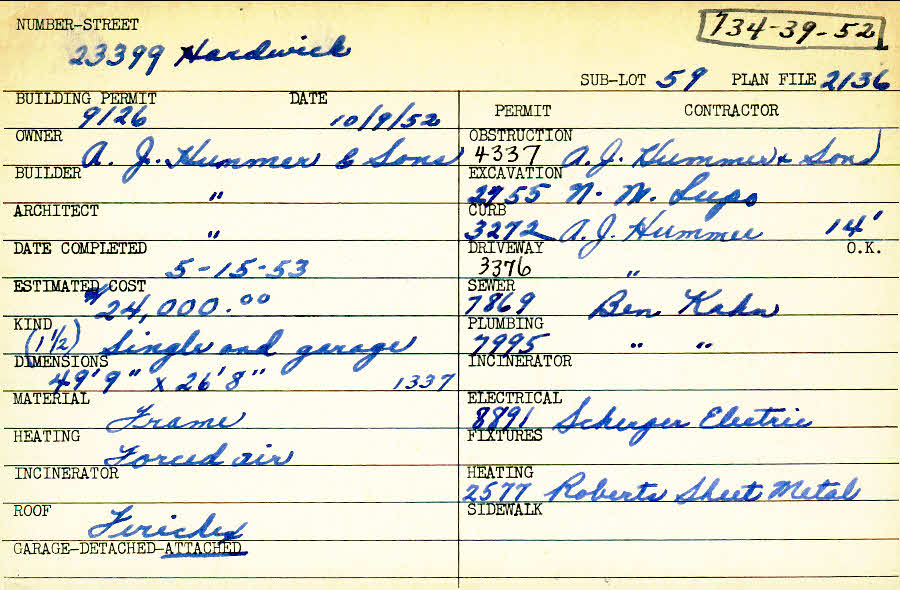 NUMBER-STREET
734-39-52
23399 Hardwick
SUB-LOT 59 PLAN FILE 2136
BUILDING PERMIT DATE
9126 10/9/52
OWNER
A. J. Hummer & Sons
BUILDER
"
ARCHITECT
"
DATE COMPLETED
5-15-53
ESTIMATED COST
$24,000.00
KIND
(1 1/2) Single and garage
DIMENSIONS
49'9" x 26'8" 1337
MATERIAL
Frame
HEATING
Forced air
INCINERATOR
ROOF
GARAGE-DETACHED-ATTACHED
PERMIT CONTRACTOR
OBSTRUCTION
4337 A.J. Hummer & Son
EXCAVATION
2755 N. M. Lupo
CURB
3272 A.J. Hummer 14'
DRIVEWAY O.K.
3376 "
SEWER
7869 Ben Kahn
PLUMBING
7995 " "
INCINERATOR
ELECTRICAL
8891 Scherger Electric
FIXTURES
HEATING
2577 Roberts Sheet Metal
SIDEWALK